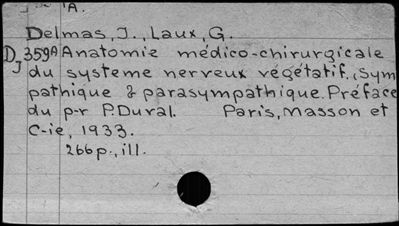 Delmas, J., Laux, G.
DJ 359A Anatomie médico-chirurgicale
du systeme nerveux végétatif. (Sym
pathique & parasympathique. Préface
du p-r P. Duval. Paris, Masson et
C-ie, 1933.
266p., ill.